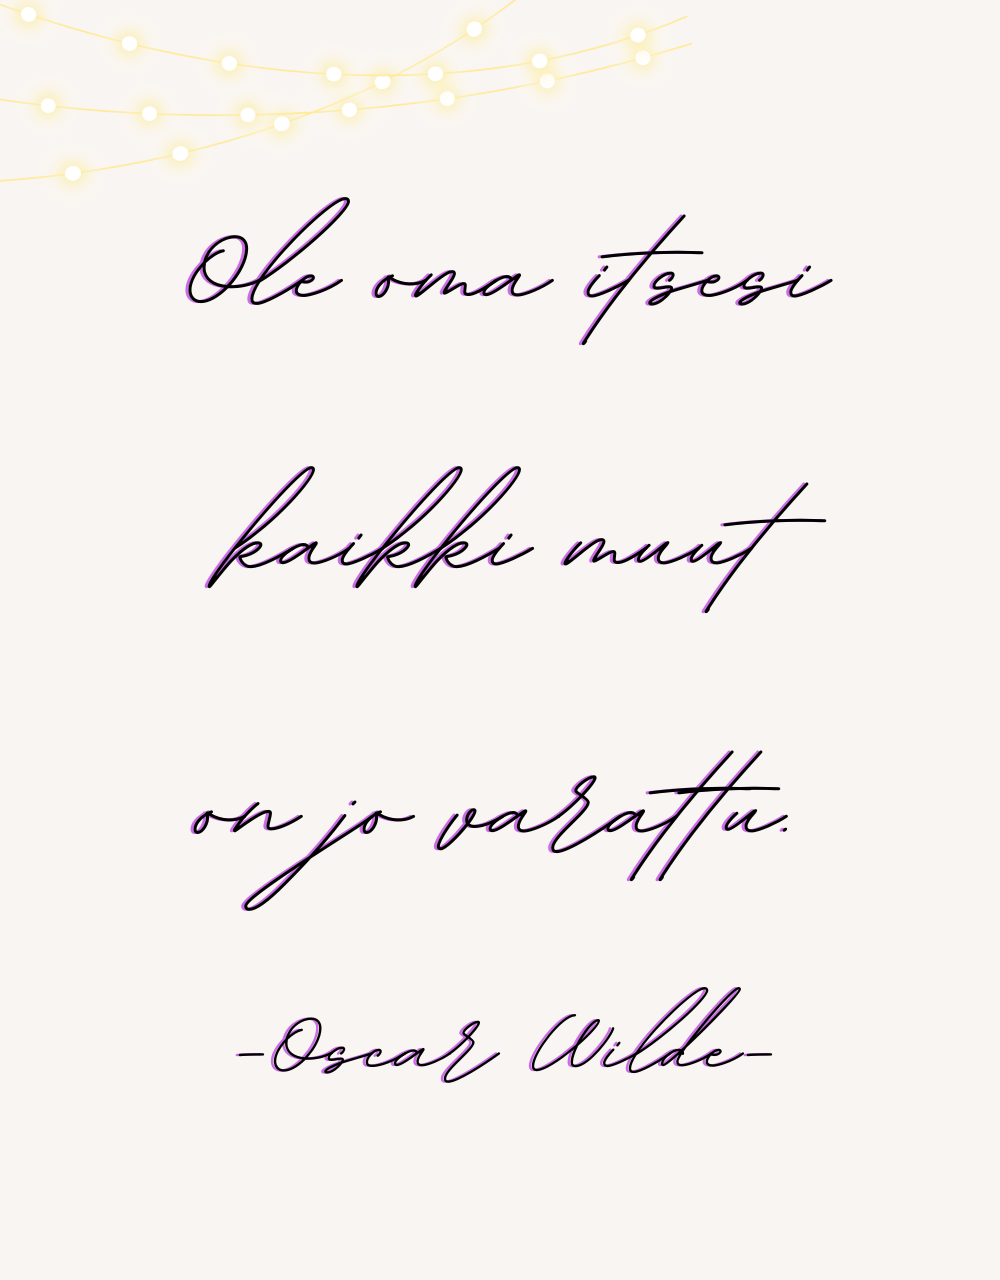 Ole oma itsesi
kaikki muut
on jo varattu.
-Oscar Wilde-